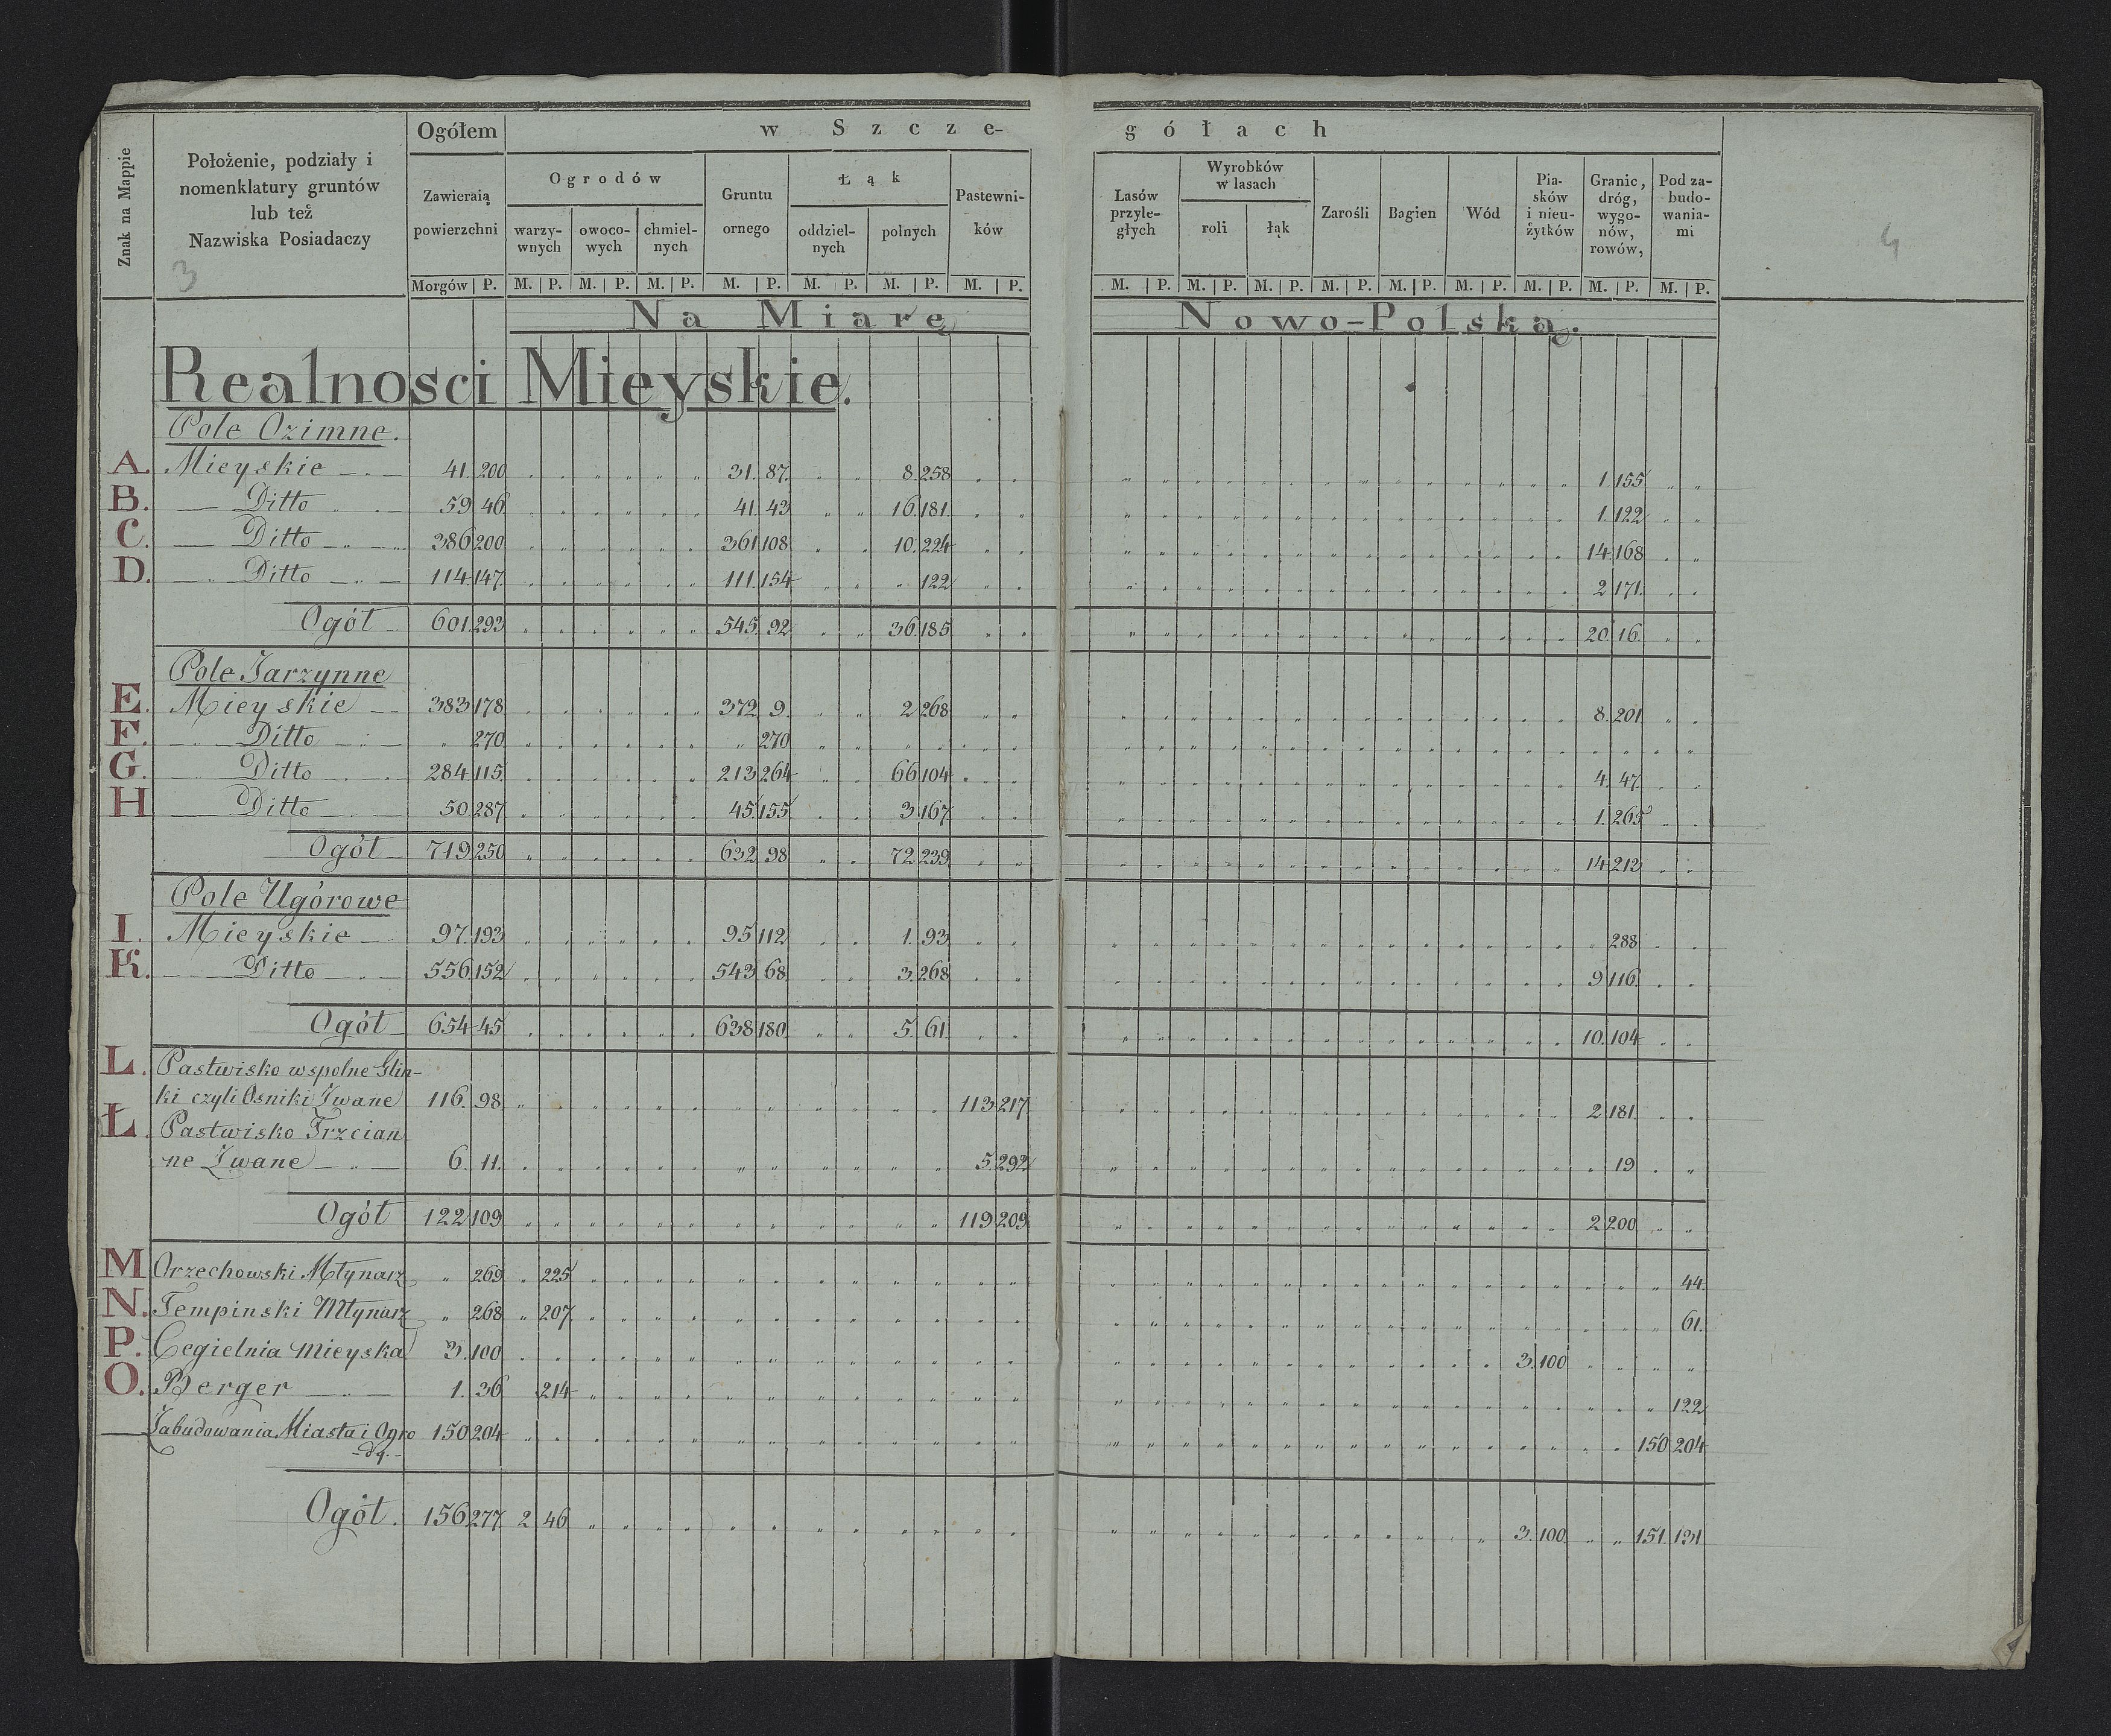 Ogółem w Szcze- gółach
Znak na Mappie
Położenie, podziały i
nomenklatury gruntów
lub też
Nazwiska Posiadaczy
3
Zawieraią
powierzchni
Ogrodów
warzy-
wnych
owoco-
wych
chmiel-
nych
Gruntu
ornego
Łąk
oddziel-
nych
polnych
Pastewni-
ków
Lasów
przyle-
głych
Wyrobków
w lasach
roli
łąk
Zarośli
Bagien
Wód
Pia-
sków
i nieu-
żytków
Granic,
dróg,
wygo-
nów,
rowów,
Pod za-
budo-
wania-
mi
4
Morgów P. M. P. M. P. M. P. M. P. M. P. M. P. M. P. M. P. M. P. M. P. M. P. M. P. M. P. M. P. M. P. M. P.
Na Miarę Nowo-Polską.
Realnosci Mieyskie.
Pole Ozimne.
A. Mieyskie 41. 200 31. 87. 8. 258 1. 155
B. Ditto 59 46 41. 43 16. 181. 1. 122
C. Ditto 386 200 361 108 10. 224 14 168
D. Ditto 114 147 111. 154 " 122 2 171.
Ogół 601. 293 545. 92 36. 185 20 16.
Pole Jarzynne
E. Mieyskie 383 178 372 9. 2 268 8. 201
F. Ditto " 270 " 270
G. Ditto 284 115. 213 264 66 104 4. 47.
H Ditto 50 287 45 155 3 167 1. 265
Ogół 719 250 632. 98 72 239 14 213
Pole Ugórowe
I. Mieyskie 97. 193 95 112 1. 93 288
K. Ditto 556 152 543 68. 3. 268 9 116.
Ogół 654 45 638 180 5. 61 10. 104
L. Pastwisko wspolne Glin-
ki czyli Osniki Zwane 116. 98 113 217 2 181
Ł. Pastwisko Trzcian
ne Zwane 6. 11. 5. 292 19
Ogół 122 109 119 209 2 200
M Orzechowski Młynarz " 269 " 225 44
N. Tempinski Młynarz " 268 " 207 61.
P. Cegielnia Mieyska 3. 100 3. 100
O. Berger 1. 36 214 122
Zabudowania Miasta i Ogro
-dy.- 150 204 150 204
Ogół. 156 277. 2 46 3. 100 151. 131